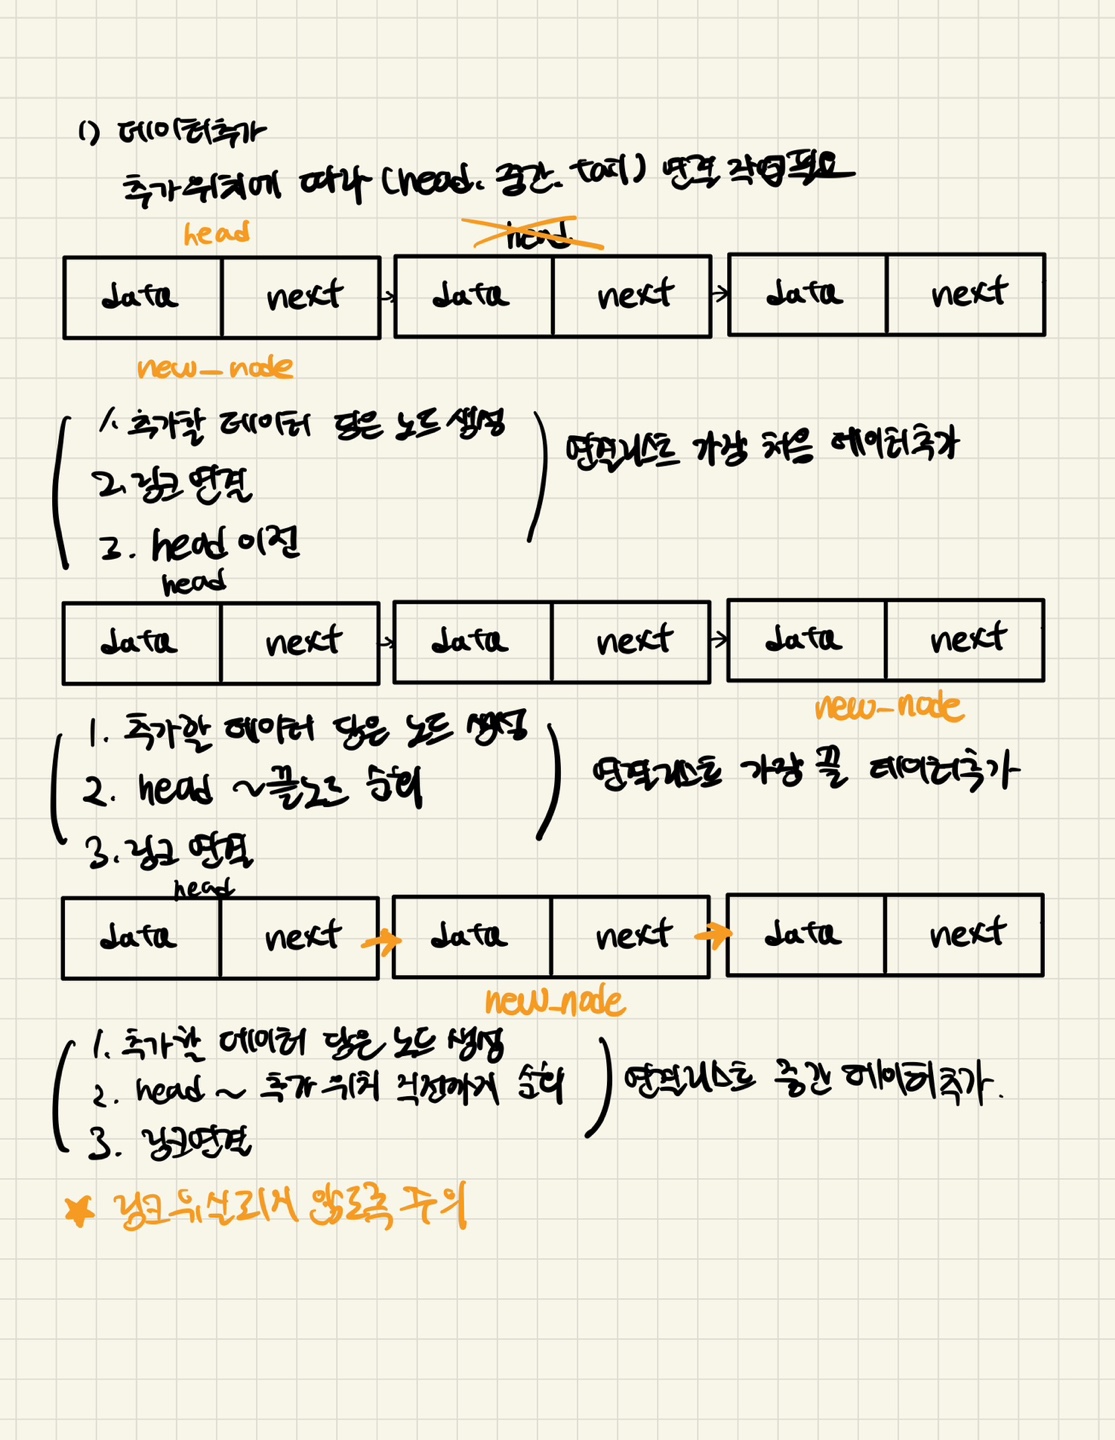 1) 데이터추가
추가위치에 따라 (head. 중간. tail) 연결 작업필요
head head
data next data next data next
new_node
1. 추가할 데이터 담은 노드 생성
2. 링크 연결
3. head 이전
연결리스트 가장 처음 데이터추가
head
data next data next data next
new-node
1. 추가할 데이터 담은 노드 생성
2. head ~끝노드 순회
3. 링크 연결
연결리스트 가장 끝 데이터추가
head
data next data next data next
new_node
1. 추가할 데이터 담은 노드 생성
2. head ~ 추가 위치 직전까지 순회
3. 링크연결
연결리스트 중간 데이터추가.
★ 링크 유실되지 않도록 주의